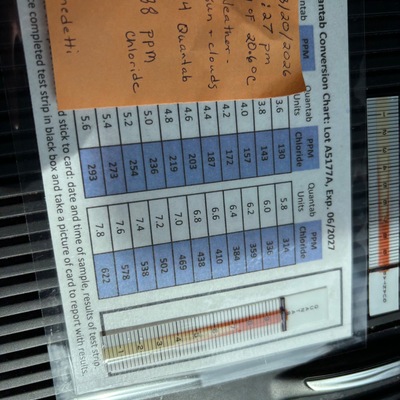 uantab Conversion Chart: Lot A5177A, Exp. 06/2027
PPM Quantab Units PPM Chloride Quantab Units PPM Chloride
3.6 130 5.8 314
3.8 143 6.0 336
4.0 157 6.2 359
4.2 172 6.4 384
4.4 187 6.6 410
4.6 203 6.8 438
4.8 219 7.0 469
5.0 236 7.2 502
5.2 254 7.4 538
5.4 273 7.6 578
5.6 293 7.8 622
3/20/2026
:27 pm
20.6°C
Weather -
+ clouds
4 Quantab
38 ppm
Chloride
nedetti
d stick to card: date and time of sample, results of test strip.
ce completed test strip in black box and take a picture of card to report with results.